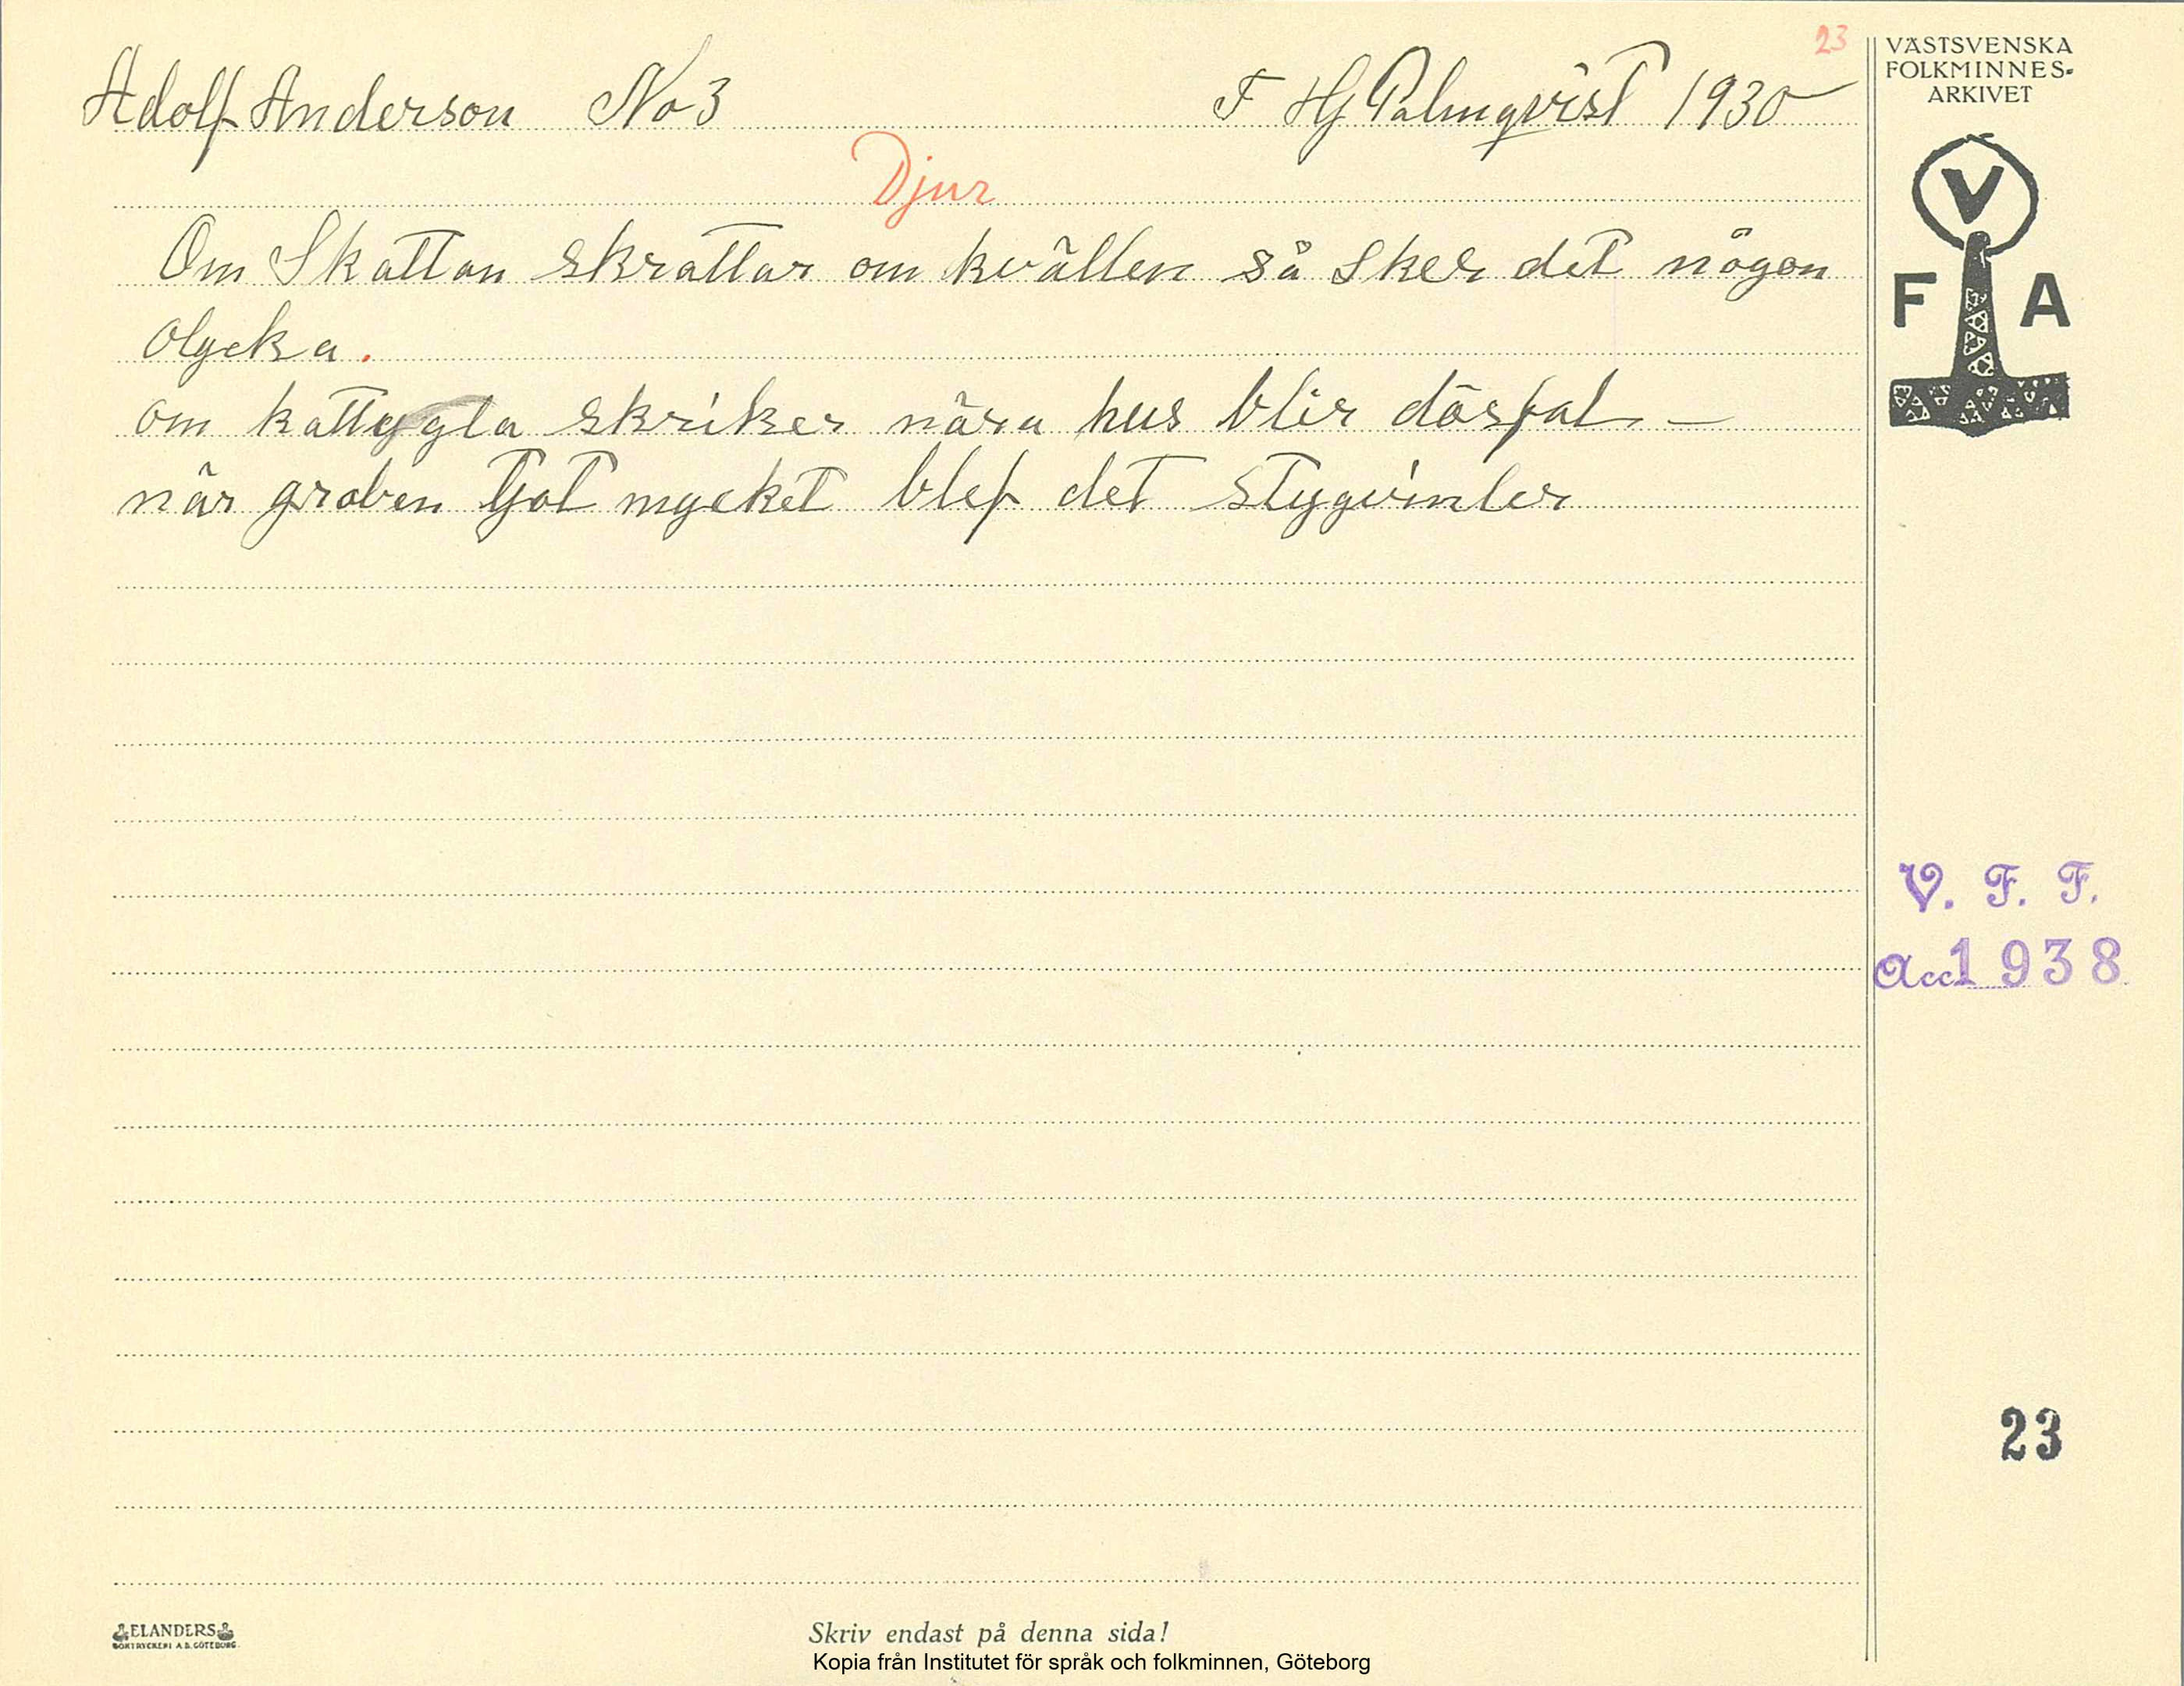 23
Adolf Anderson No 3 F HG Palmqvist 1930
Djur
Om Skattan skrattar om kvällen så sker det någon
olycka.
om kattygla skriker nära hus blir dösfal –
när graben tjöt mycket blef det stygvinter
VÄSTSVENSKA
FOLKMINNES-
ARKIVET
V
F A
V. F. F.
Acc 1938
23
ELANDERS
BOKTRYCKERI A.B. GÖTEBORG.
Skriv endast på denna sida!
Kopia från Institutet för språk och folkminnen, Göteborg